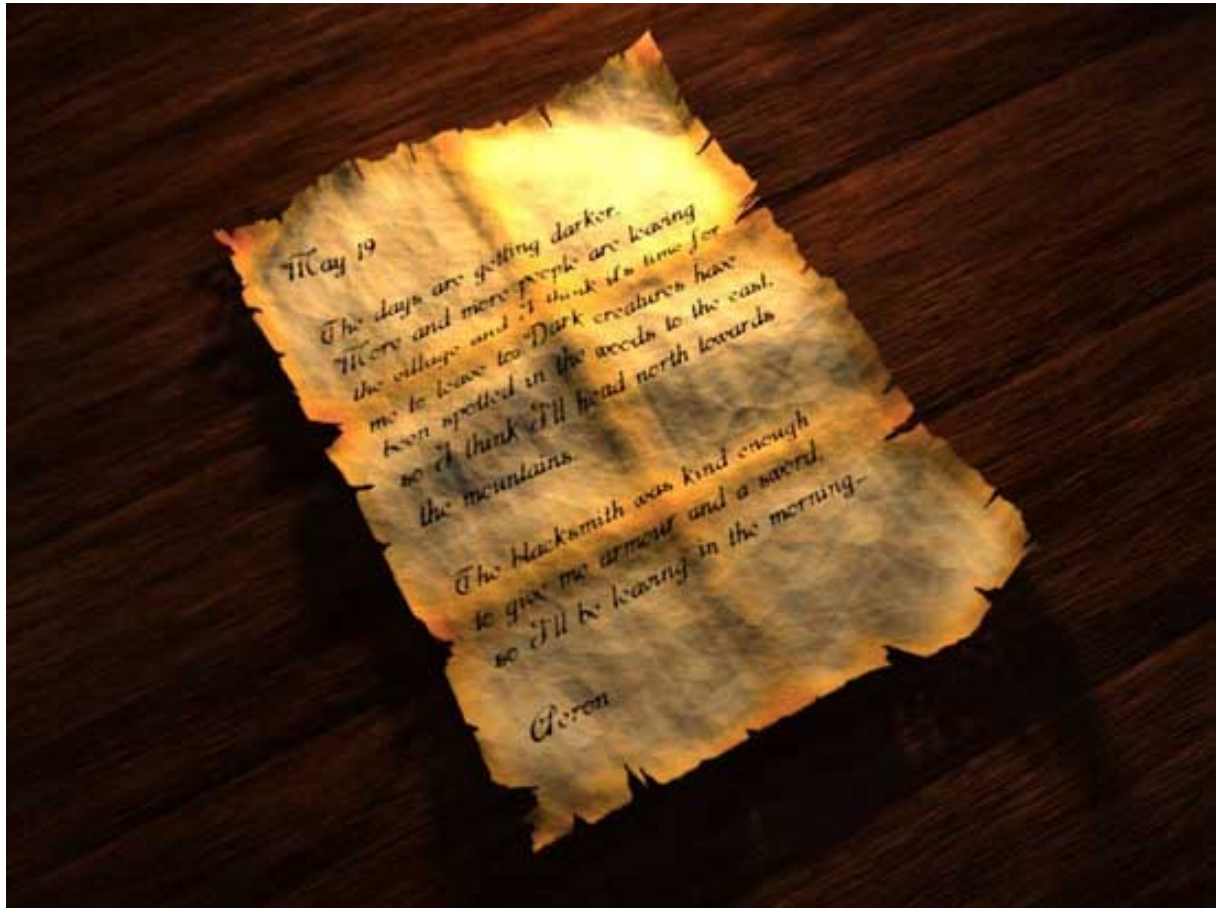 May 19
The days are getting darker.
More and more people are leaving
the village and I think it's time for
me to leave too. Dark creatures have
been spotted in the woods to the east,
so I think I'll head north towards
the mountains.
The blacksmith was kind enough
to give me armour and a sword,
so I'll be leaving in the morning...
Aeron